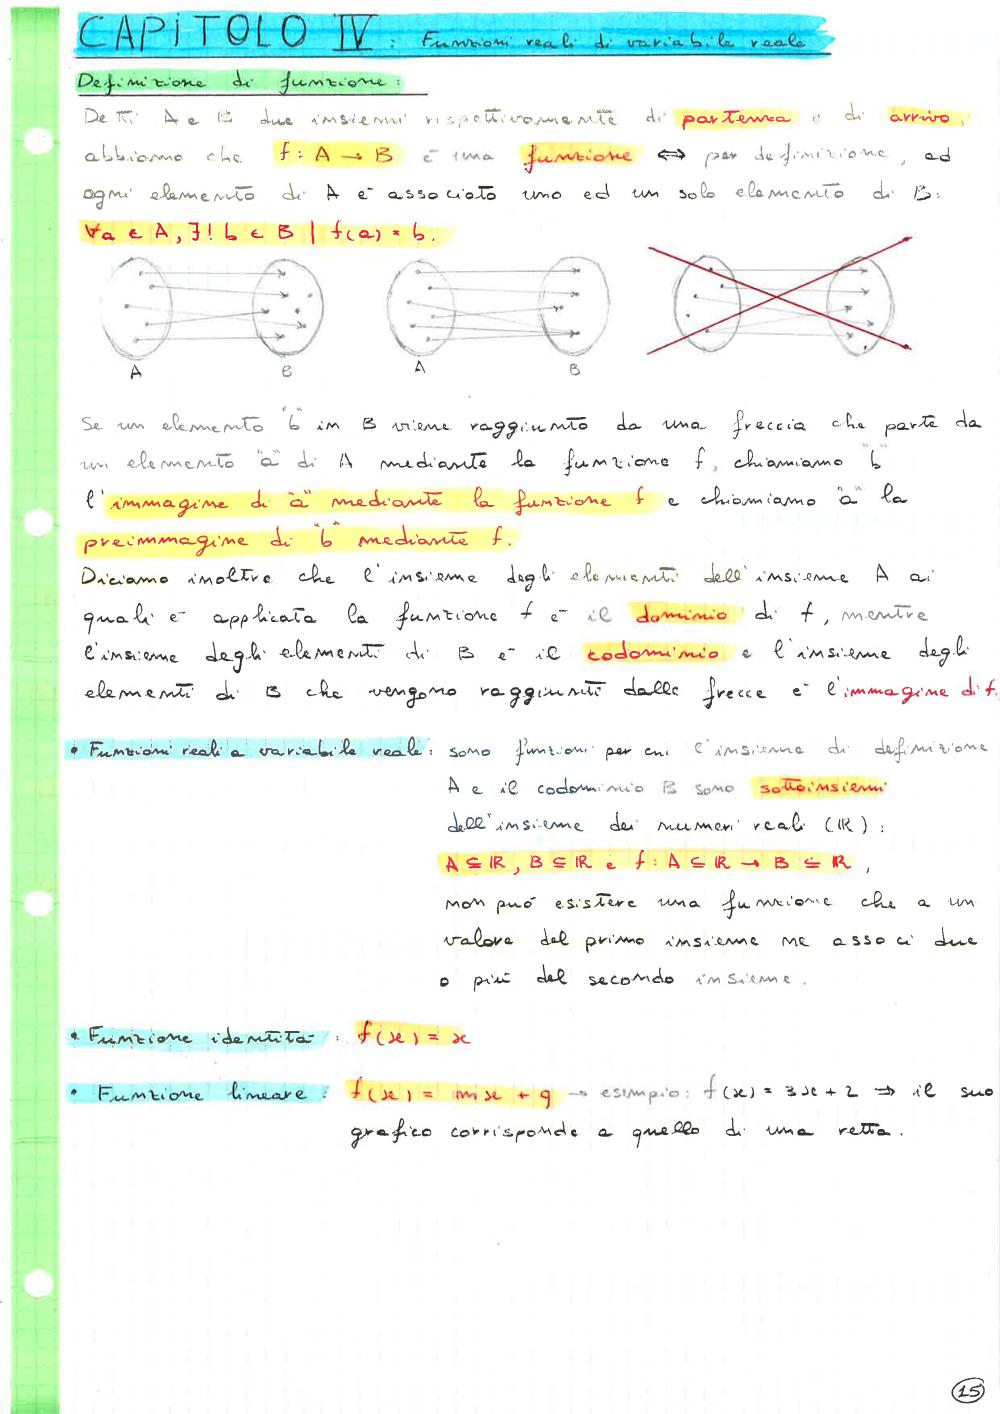 CAPITOLO IV : Funzioni reali di variabile reale
Definizione di funzione:
Detti A e B due insiemi rispettivamente di partenza e di arrivo,
abbiamo che f: A → B è una funzione ⇔ per definizione, ad
ogni elemento di A è associato uno ed un solo elemento di B:
∀a ∈ A, ∃! b ∈ B | f(a) = b.
A B A B
Se un elemento "b" in B viene raggiunto da una freccia che parte da
un elemento "a" di A mediante la funzione f, chiamiamo "b"
l'immagine di "a" mediante la funzione f e chiamiamo "a" la
preimmagine di "b" mediante f.
Diciamo inoltre che l'insieme degli elementi dell'insieme A ai
quali è applicata la funzione f è il dominio di f, mentre
l'insieme degli elementi di B è il codominio e l'insieme degli
elementi di B che vengono raggiunti dalle frecce è l'immagine di f.
• Funzioni reali a variabile reale: sono funzioni per cui l'insieme di definizione
A e il codominio B sono sottoinsiemi
dell'insieme dei numeri reali (ℝ):
A ⊆ ℝ, B ⊆ ℝ e f: A ⊆ ℝ → B ⊆ ℝ,
non può esistere una funzione che a un
valore del primo insieme ne associ due
o più del secondo insieme.
• Funzione identità: f(x) = x
• Funzione lineare: f(x) = mx + q → esempio: f(x) = 3x + 2 ⇒ il suo
grafico corrisponde a quello di una retta.
15